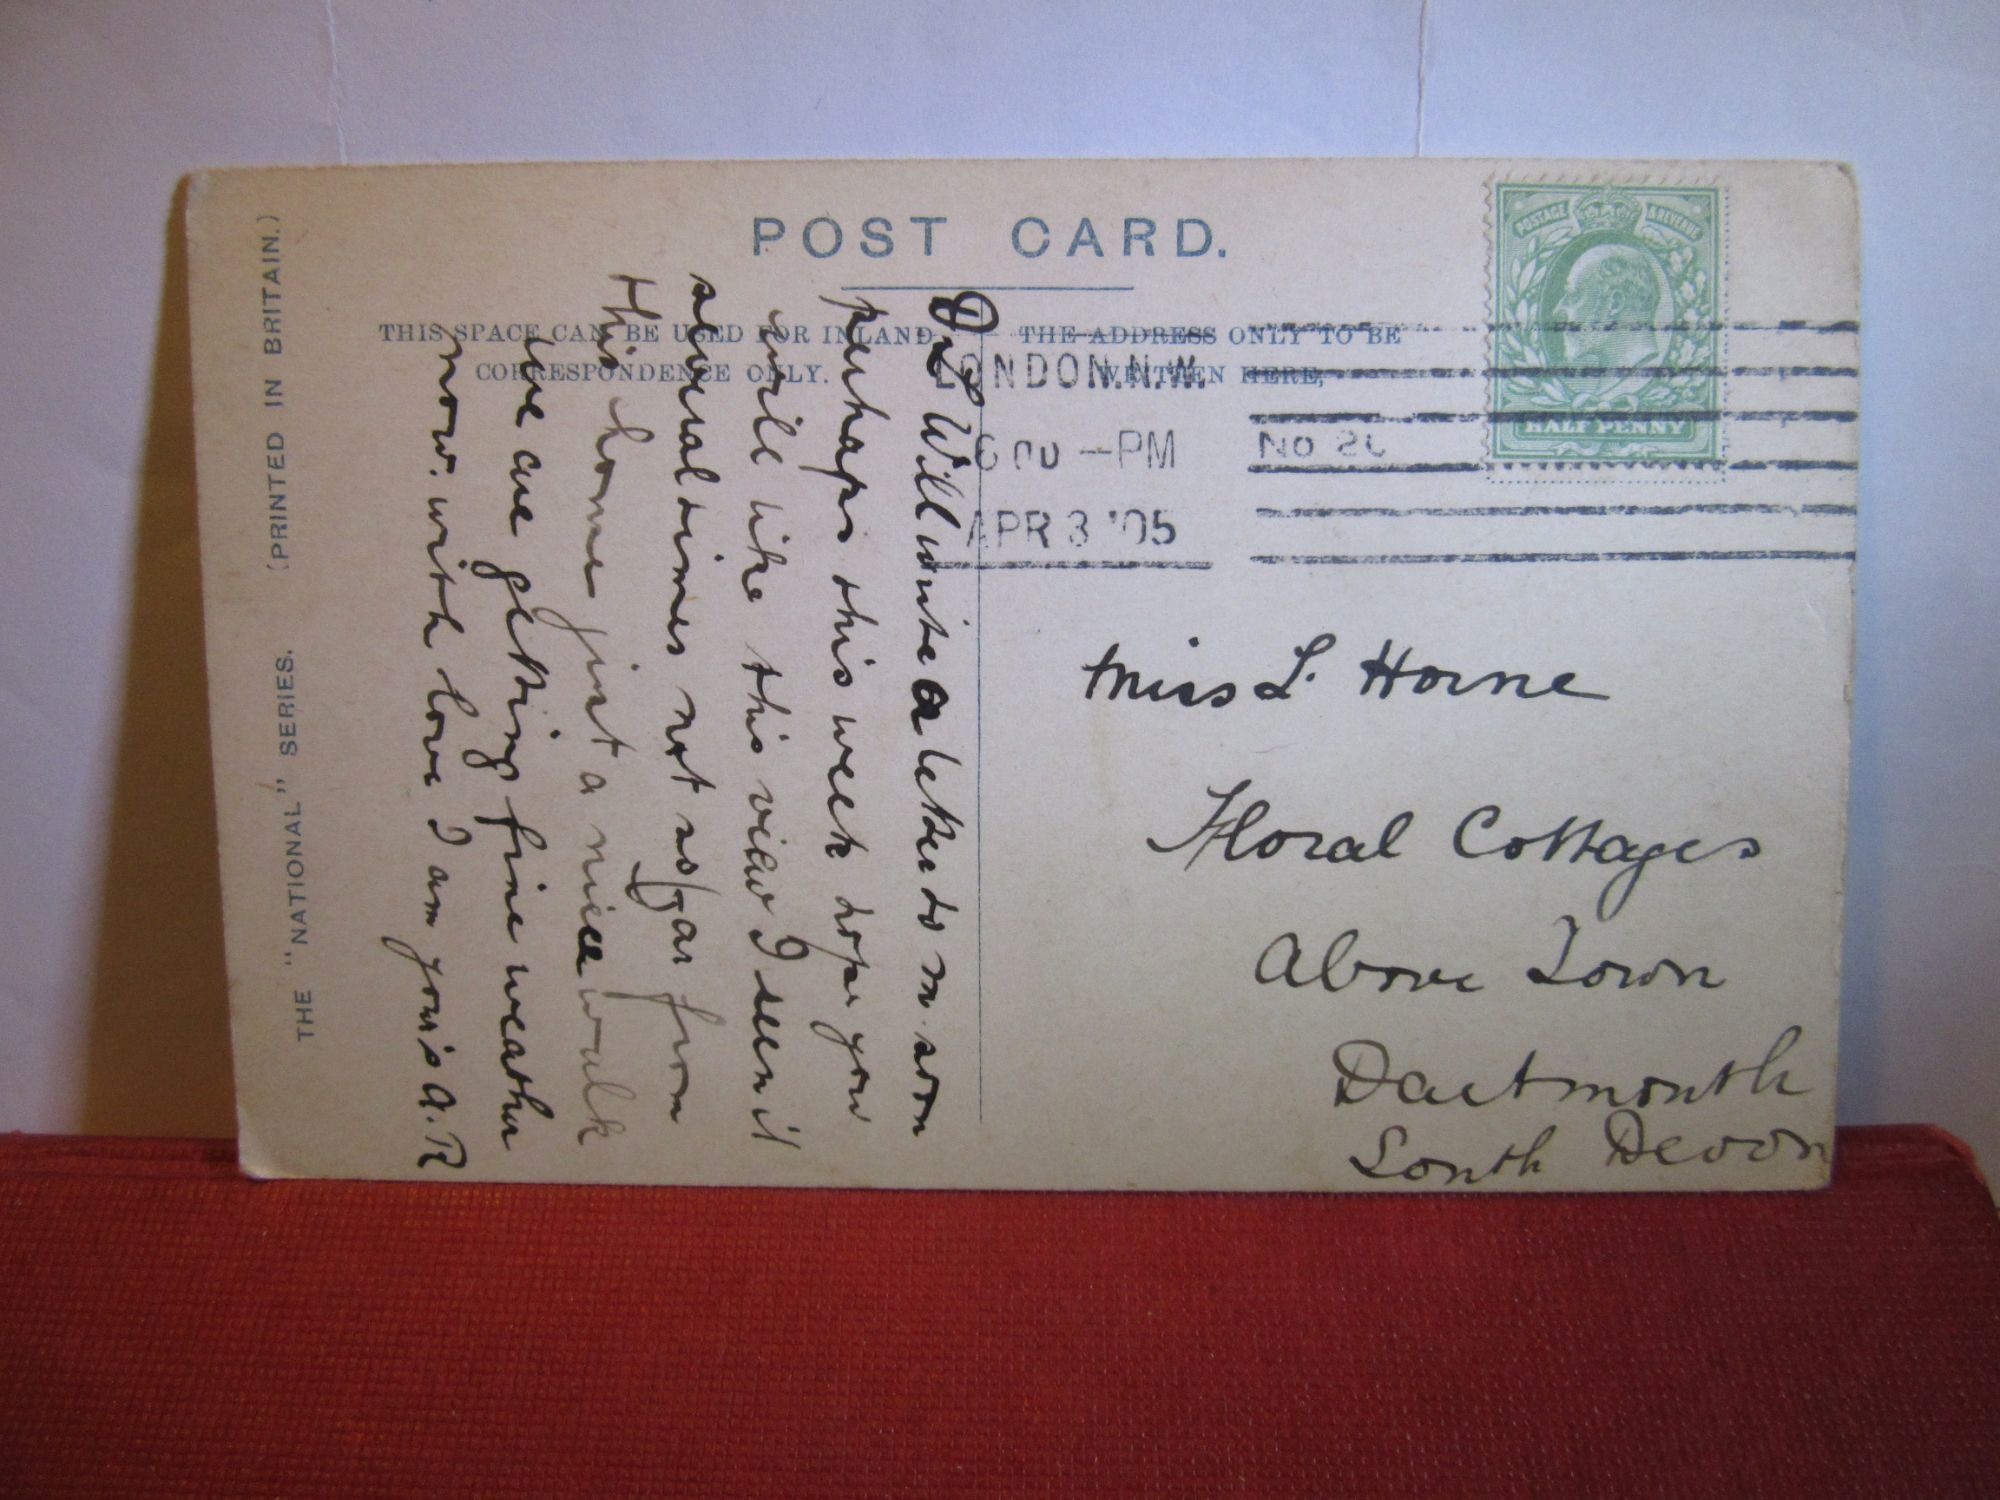 POST CARD.
THIS SPACE CAN BE USED FOR INLAND
CORRESPONDENCE ONLY.
THE ADDRESS ONLY TO BE
WRITTEN HERE,
POSTAGE & REVENUE
HALF PENNY
LONDON.N.W.
6 00 - PM
APR 3 '05
No 20
Miss L. Horne
Floral Cottages
Above Town
Dartmouth
South Devon
Will write a letter to soon
perhaps this week hope you
will like this view I seen it
several times not so far from
this home just a nice walk
we are getting fine weather
now. with love I am your's A.R
THE "NATIONAL" SERIES. (PRINTED IN BRITAIN.)